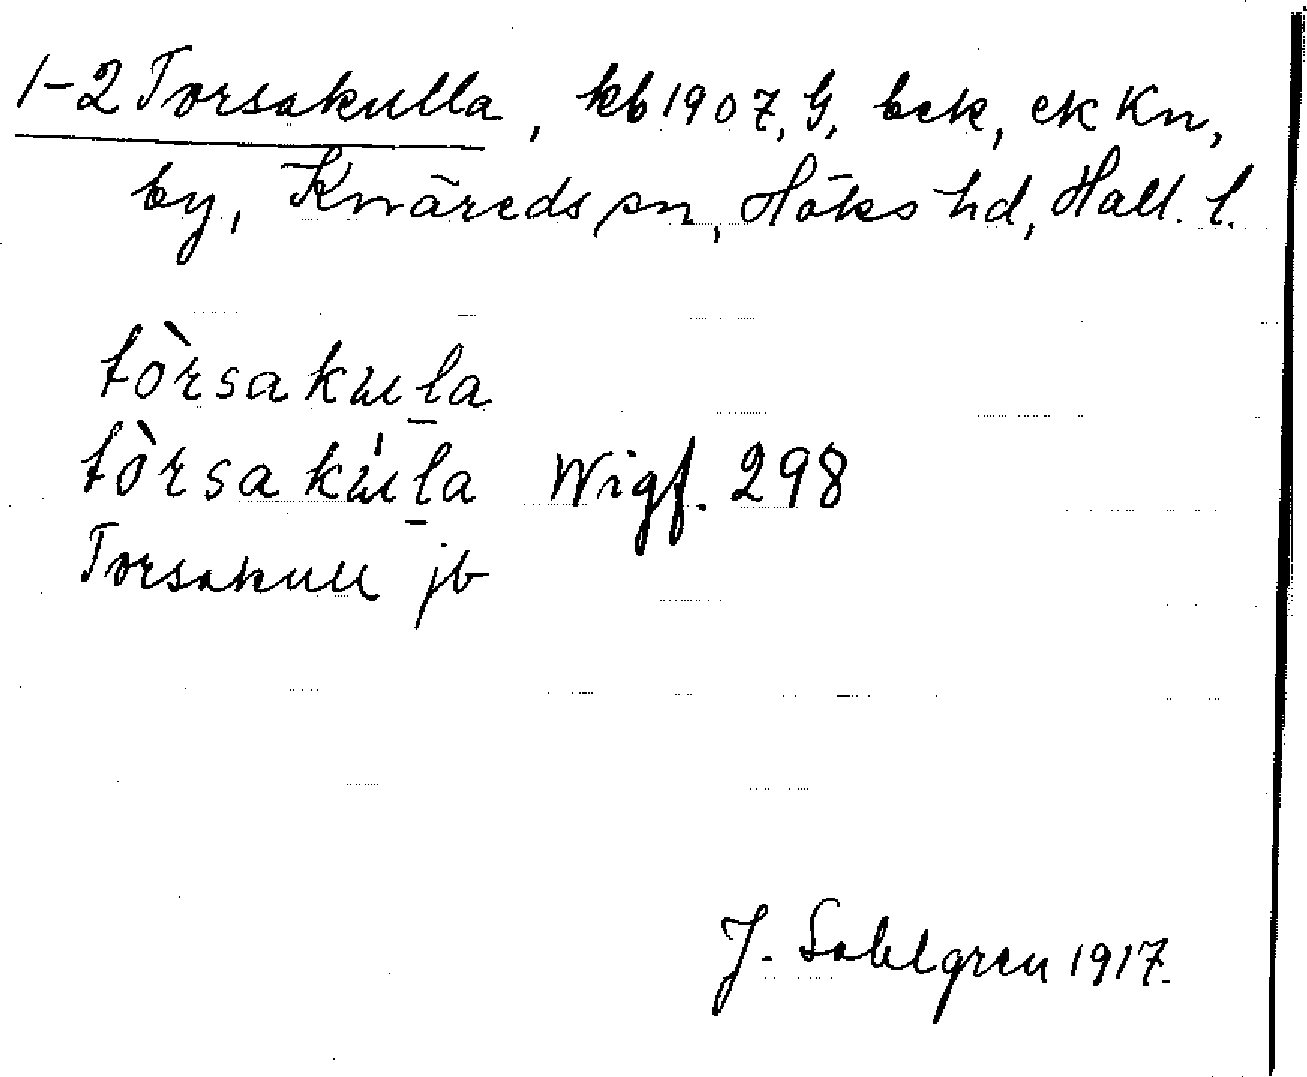 1-2 Torsakulla, kb 1907, G, bek, ek Kn,
by, Knäreds sn, Höks hd, Hall. l.
tòrsakula
tòrsakúla Wigf. 298
Torsakull jb
J. Sahlgren 1917.